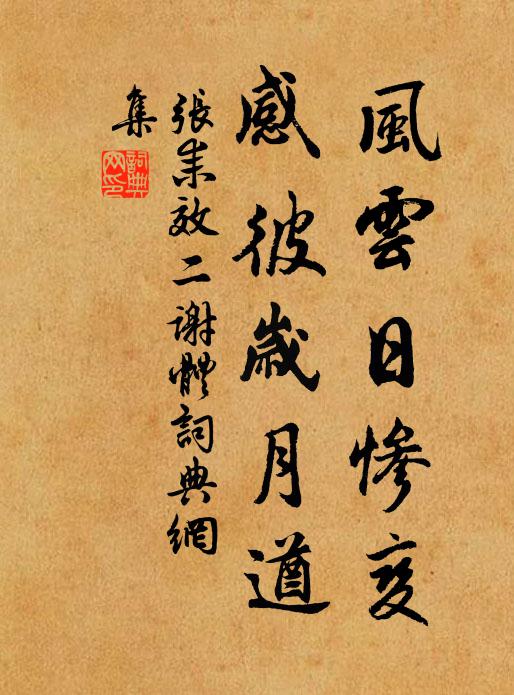 風雲日慘變
感彼歲月遒
張耒效二謝體詞典網
集
詞典
網印